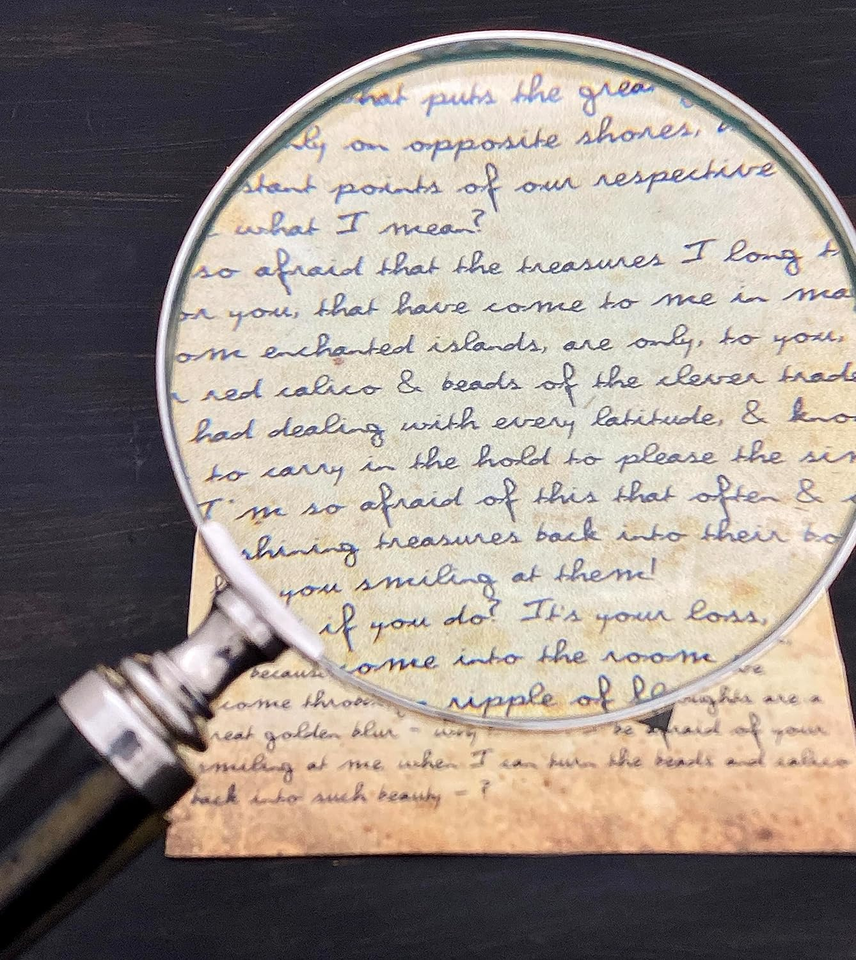 that puts the grea
ly on opposite shores,
stant points of our respective
what I mean?
so afraid that the treasures I long t
or you, that have come to me in ma
ome enchanted islands, are only, to you,
red calico & beads of the clever trade
had dealing with every latitude, & kno
to carry in the hold to please the sim
I'm so afraid of this that often &
shining treasures back into their bo
you smiling at them!
if you do? It's your loss,
because come into the room
come throu ripple of ughts are a
reat golden blur - why be afraid of your
smiling at me when I can turn the beads and calico
back into such beauty - ?